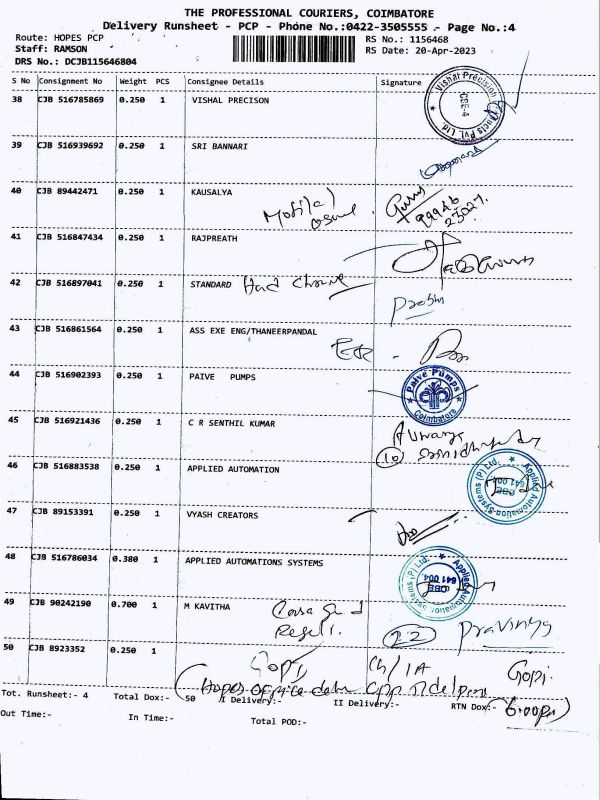 THE PROFESSIONAL COURIERS, COIMBATORE
Delivery Runsheet - PCP - Phone No.:0422-3505555 - Page No.:4
Route: HOPES PCP RS No.: 1156468
Staff: RAMSON RS Date: 20-Apr-2023
DRS No.: DCJB115646804
S No Consignment No Weight PCS Consignee Details Signature
38 CJB 516785869 0.250 1 VISHAL PRECISON
Vishal Precision Products Pvt. Ltd. CBE-4
39 CJB 516939692 0.250 1 SRI BANNARI
40 CJB 89442471 0.250 1 KAUSALYA
Motilal
41 CJB 516847434 0.250 1 RAJPREATH
42 CJB 516897041 0.250 1 STANDARD
Prabhu
43 CJB 516861564 0.250 1 ASS EXE ENG/THANEERPANDAL
44 CJB 516902393 0.250 1 PAIVE PUMPS
Paive Pumps Coimbatore
45 CJB 516921436 0.250 1 C R SENTHIL KUMAR
10
46 CJB 516883538 0.250 1 APPLIED AUTOMATION
Applied Automation Systems (P) Ltd. CBE 641 004.
47 CJB 89153391 0.250 1 VYASH CREATORS
48 CJB 516786034 0.380 1 APPLIED AUTOMATIONS SYSTEMS
Applied Automation Systems (P) Ltd. CBE 641 004.
49 CJB 90242190 0.700 1 M KAVITHA
22 Pravinya
50 CJB 8923352 0.250 1
Gopi Gopi.
Tot. Runsheet:- 4 Total Dox:- 50 I Delivery:- II Delivery:- RTN Dox:-
Hopes office
6:00pm
Out Time:- In Time:- Total POD:-